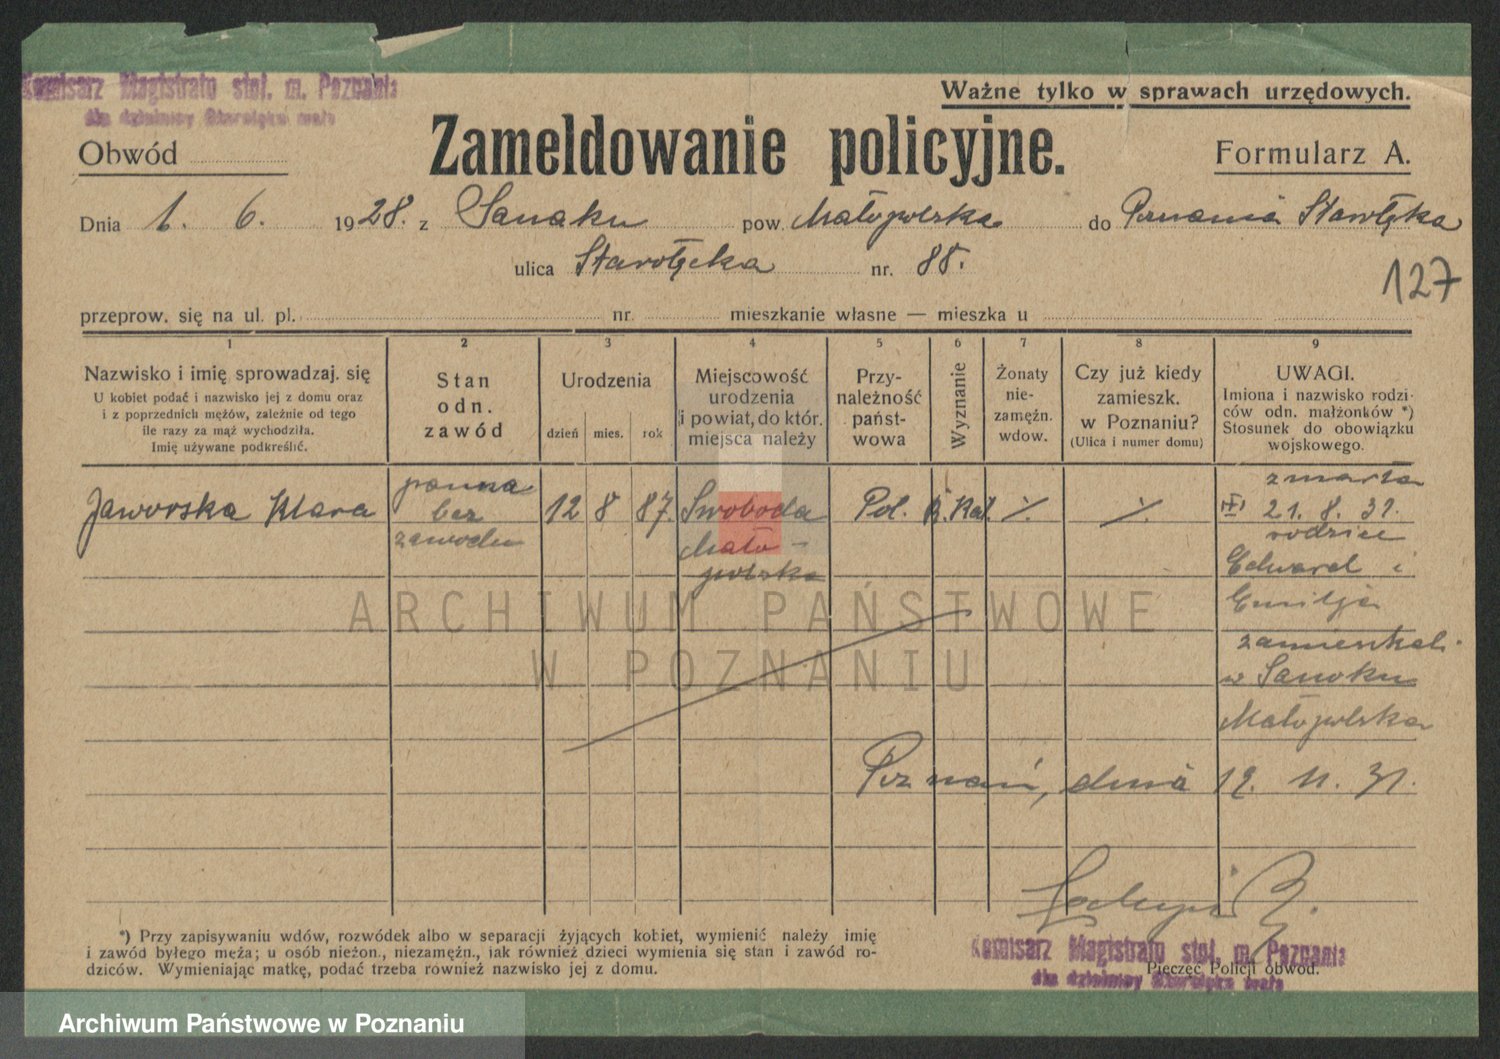 Komisarz Magistratu stoł. m. Poznania
dla dzielnicy Starołęka mała
Ważne tylko w sprawach urzędowych.
Obwód
Zameldowanie policyjne.
Formularz A.
Dnia 1. 6. 1928. z Sanoku pow. Małopolska do Poznania Starołęka
ulica Starołęcka nr. 88.
127
przeprow. się na ul. pl. nr. mieszkanie własne — mieszka u
1
Nazwisko i imię sprowadzaj. się
U kobiet podać i nazwisko jej z domu oraz
i z poprzednich mężów, zależnie od tego
ile razy za mąż wychodziła.
Imię używane podkreślić.
2
Stan
odn.
zawód
3
Urodzenia
dzień mies. rok
4
Miejscowość
urodzenia
i powiat, do któr.
miejsca należy
5
Przy-
należność
państ-
wowa
6
Wyznanie
7
Żonaty
nie-
zamężn.
wdow.
8
Czy już kiedy
zamieszk.
w Poznaniu?
(Ulica i numer domu)
9
UWAGI.
Imiona i nazwisko rodzi-
ców odn. małżonków *)
Stosunek do obowiązku
wojskowego.
Jaworska Klara
panna
bez
zawodu
12 8 87.
Swoboda
Mało-
polska
Pol.
R. Kat.
·/.
·/.
zmarła
21. 8. 31.
rodzice
Edward i
Emilja
zamieszkali
w Sanoku
Małopolska
Poznań, dnia 12. 11. 31.
ARCHIWUM PAŃSTWOWE
W POZNANIU
*) Przy zapisywaniu wdów, rozwódek albo w separacji żyjących kobiet, wymienić należy imię
i zawód byłego męża; u osób nieżon., niezamężn., jak również dzieci wymienia się stan i zawód ro-
dziców. Wymieniając matkę, podać trzeba również nazwisko jej z domu.
Komisarz Magistratu stoł. m. Poznania
Pieczęć Policji obwod.
dla dzielnicy Starołęka mała
Archiwum Państwowe w Poznaniu